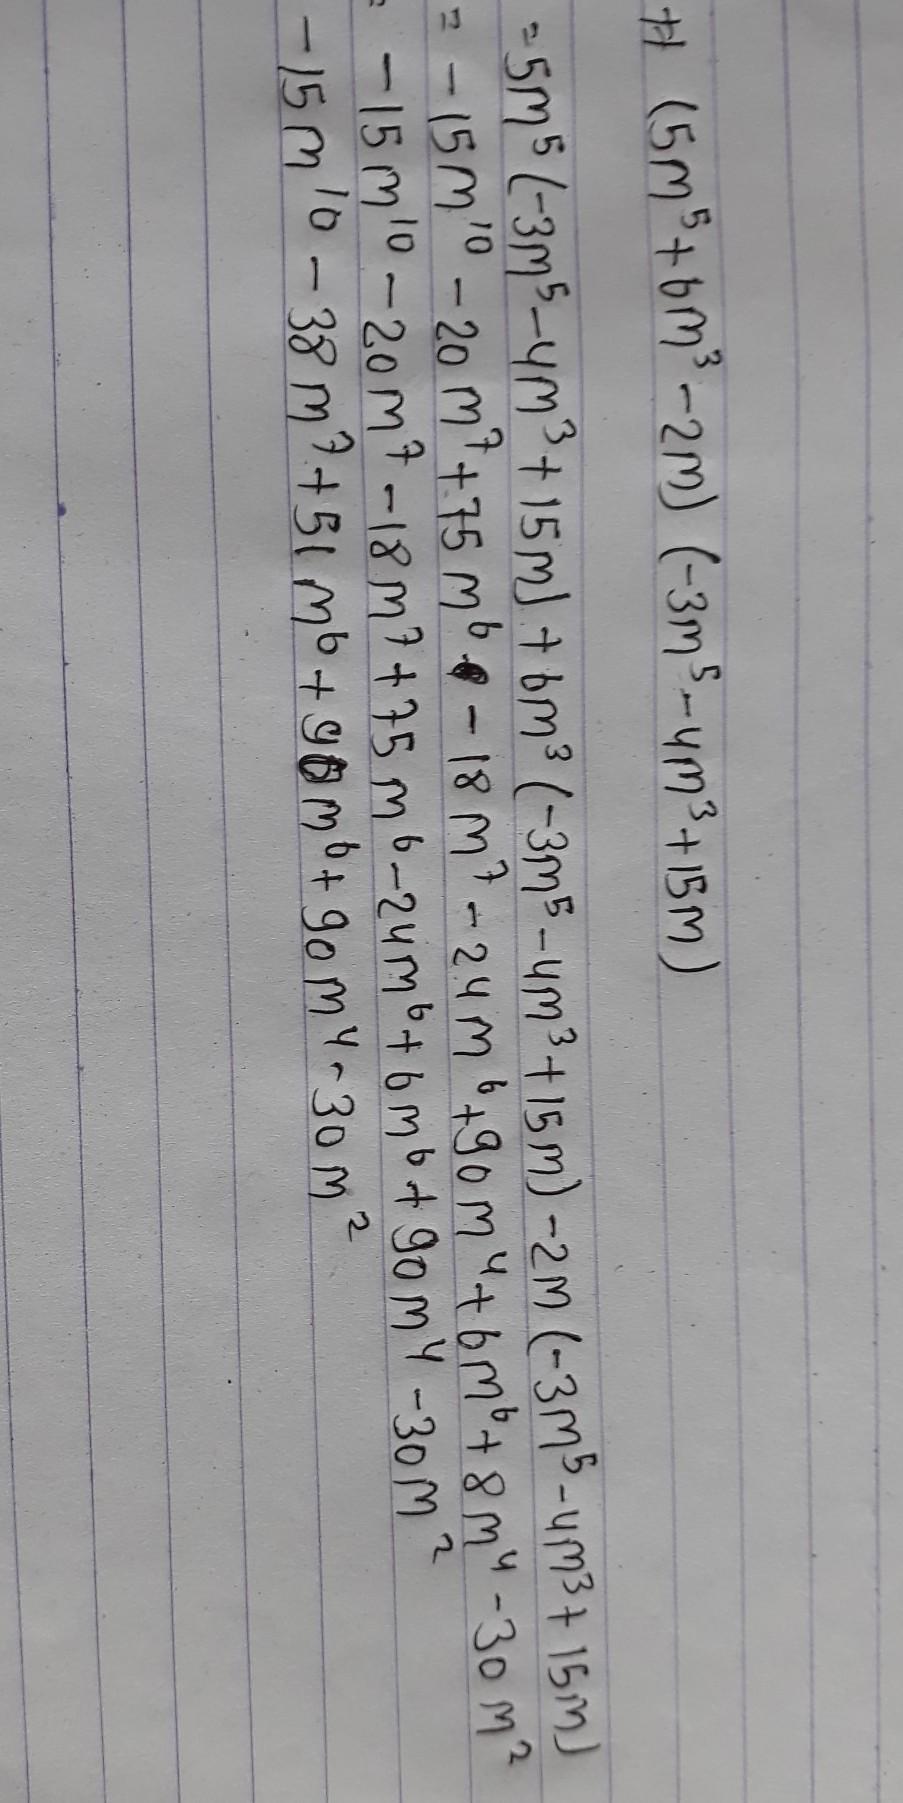 H (5m⁵+6m³-2m) (-3m⁵-4m³+15m)
=5m⁵(-3m⁵-4m³+15m)+6m³(-3m⁵-4m³+15m)-2m(-3m⁵-4m³+15m)
= -15m¹⁰-20m⁷+75m⁶-18m⁷-24m⁶+90m⁴+6m⁶+8m⁴-30m²
= -15m¹⁰-20m⁷-18m⁷+75m⁶-24m⁶+6m⁶+90m⁴-30m²
-15m¹⁰-38m⁷+51m⁶+96m⁶+90m⁴-30m²